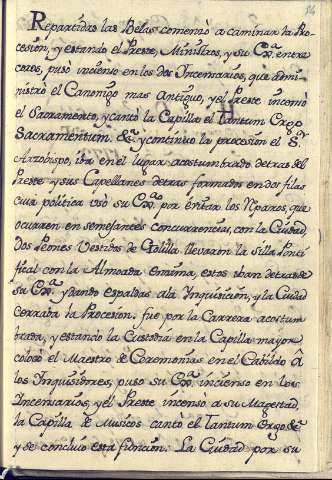 Repartidas las Belas comenzò a caminar la Pro-
cesion, y estando el Preste, Ministros, y su Exª. entre
coros, puso incienso en los dos Incensarios, que admi-
nistrò el Canonigo mas Antiguo, y el Preste incensò
el Sacramento, y cantò la Capilla el Tantum Ergo
Sacramentum. &ª. y continuò la procesion el Sr.
Arzobispo, iba en el lugar acostumbrado detras del
Preste y sus Capellanes detras formados en dos filas
cuia politica usò su Exª. por evitar los reparos que
ocurren en semejantes concurrencias, con la Ciudad,
dos Peones Vestidos de Golilla llevaron la Silla Ponti
fical con la Almoada encima, estos iban detras de
su Exª. y dando espaldas a la Inquisicion, y la Ciudad
cerraba la Procesion. fue por la Carrera acostum
brada, y estando la Custodia en la Capilla mayor
colocò el Maestro de Ceremonias en el Cabildo â
los Inquisidores, puso su Exª. incienso en los
Incensarios, y el Preste incensò a su Magestad,
la Capilla de Musicos cantò el Tantum Ergo &ª.
y se concluiò esta funcion. La Ciudad por su